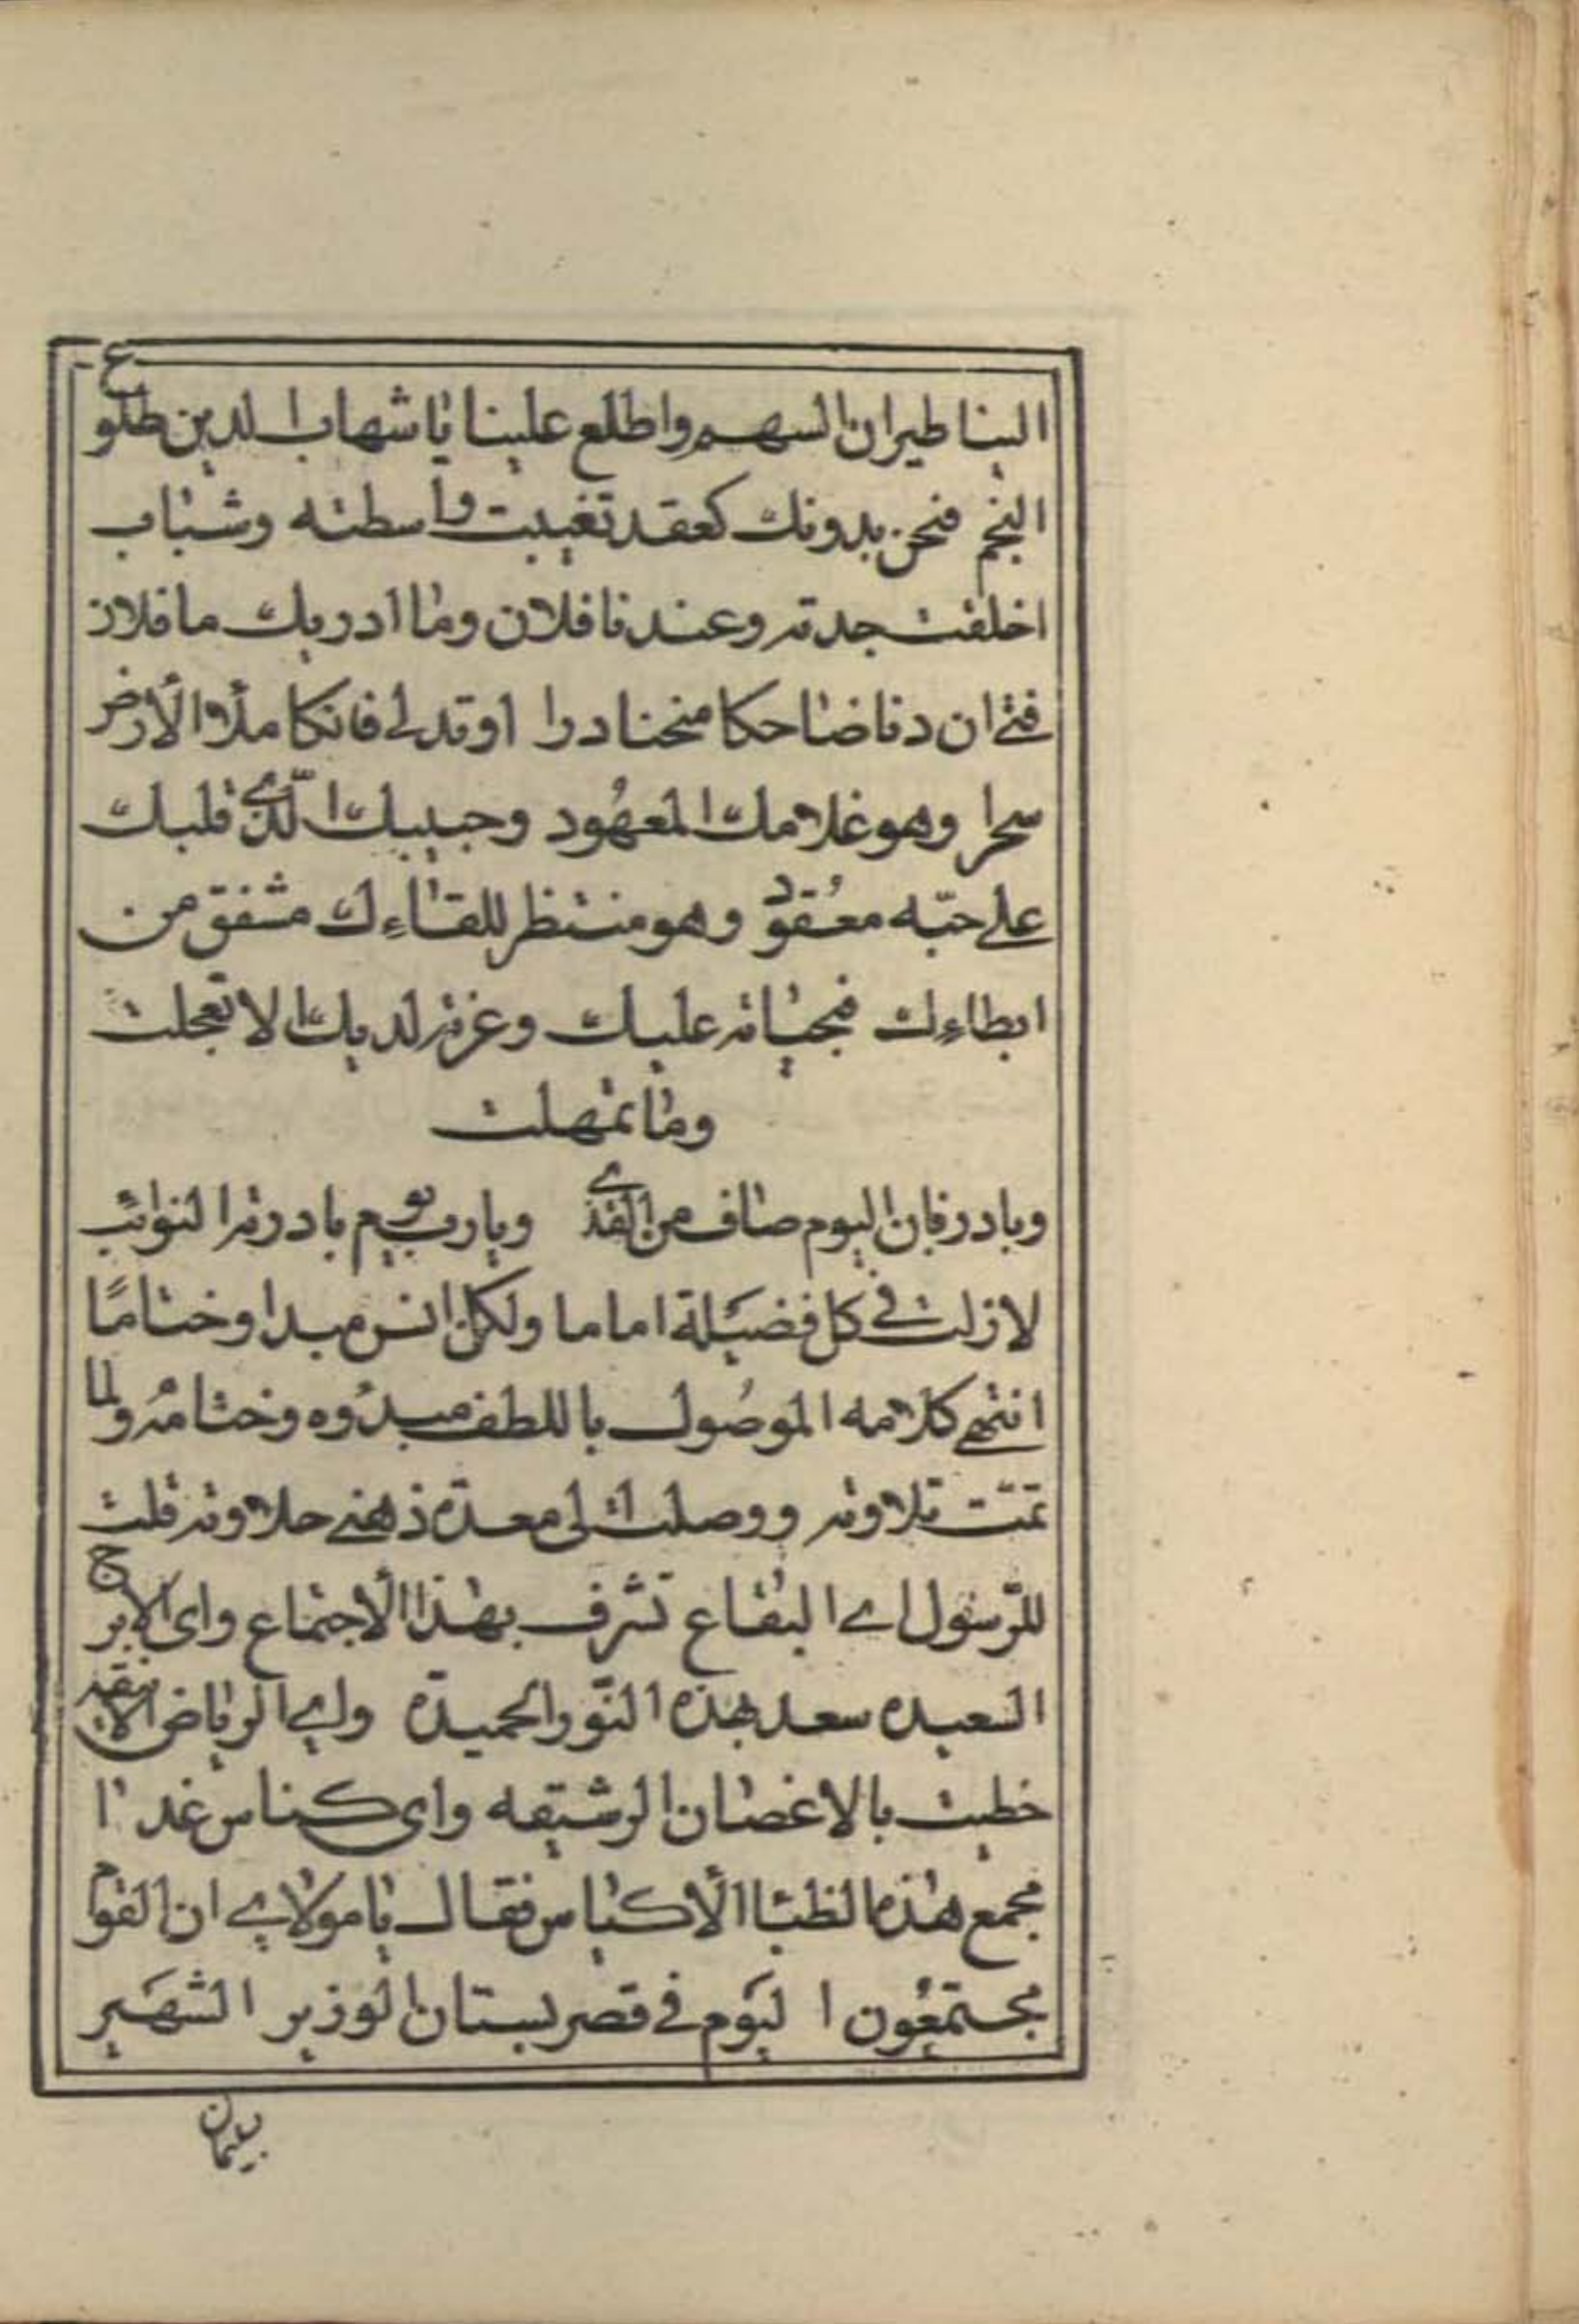 الينا طيران السهم واطلع علينا يا شهاب الدين طلوع
النجم فنحن بدونك كعقد تغيبت واسطته وشباب
اخلقت جدته وعندنا فلان وما ادريك ما فلان
فتى ان دنا ضاحكا منحنا درا او تدلى فاتكا ملأ الأرض
سحرا وهو غلامك المعهُود وحبيبك الّذي قلبك
على حبّه معُقود وهو منتظر للقاءك مشفق من
ابطاءك فبحياته عليك وعزته لديك الا تعجلت
وما تمهلت
وبادر فان اليوم صاف من القذى ويا رب يوم بادرته النوائب
لا زلت في كل فضيلة اماما ولكل انس مبدا وختامًا
انتهى كلامه الموصُول باللطف مبدؤه وختامُه ولما
تمّت تلاوته ووصلت الى معدة ذهني حلاوته قلت
للرّسول اي البقاع تشرف بهذا الأجتماع واى الابرج
السعيده سعد بهذه النوّر الحميدة واي الرياض الانيقه
خطيت بالاغصان الرشيقه واى كناس غدا
مجمع هذه الظبا الأكياس فقال يا مولاي ان القوم
مجتمعُون اليَوم في قصر بستان الوزير الشهَير